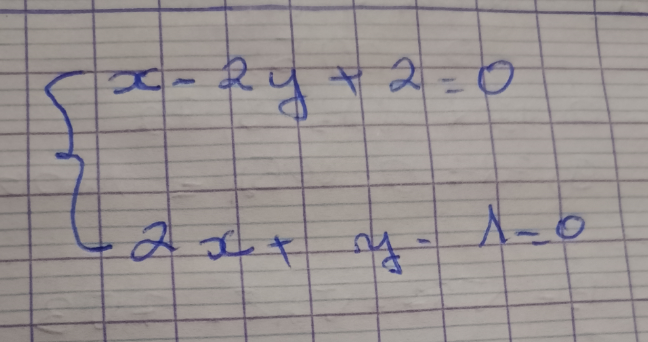 x - 2y + 2 = 0
2x + y - 1 = 0